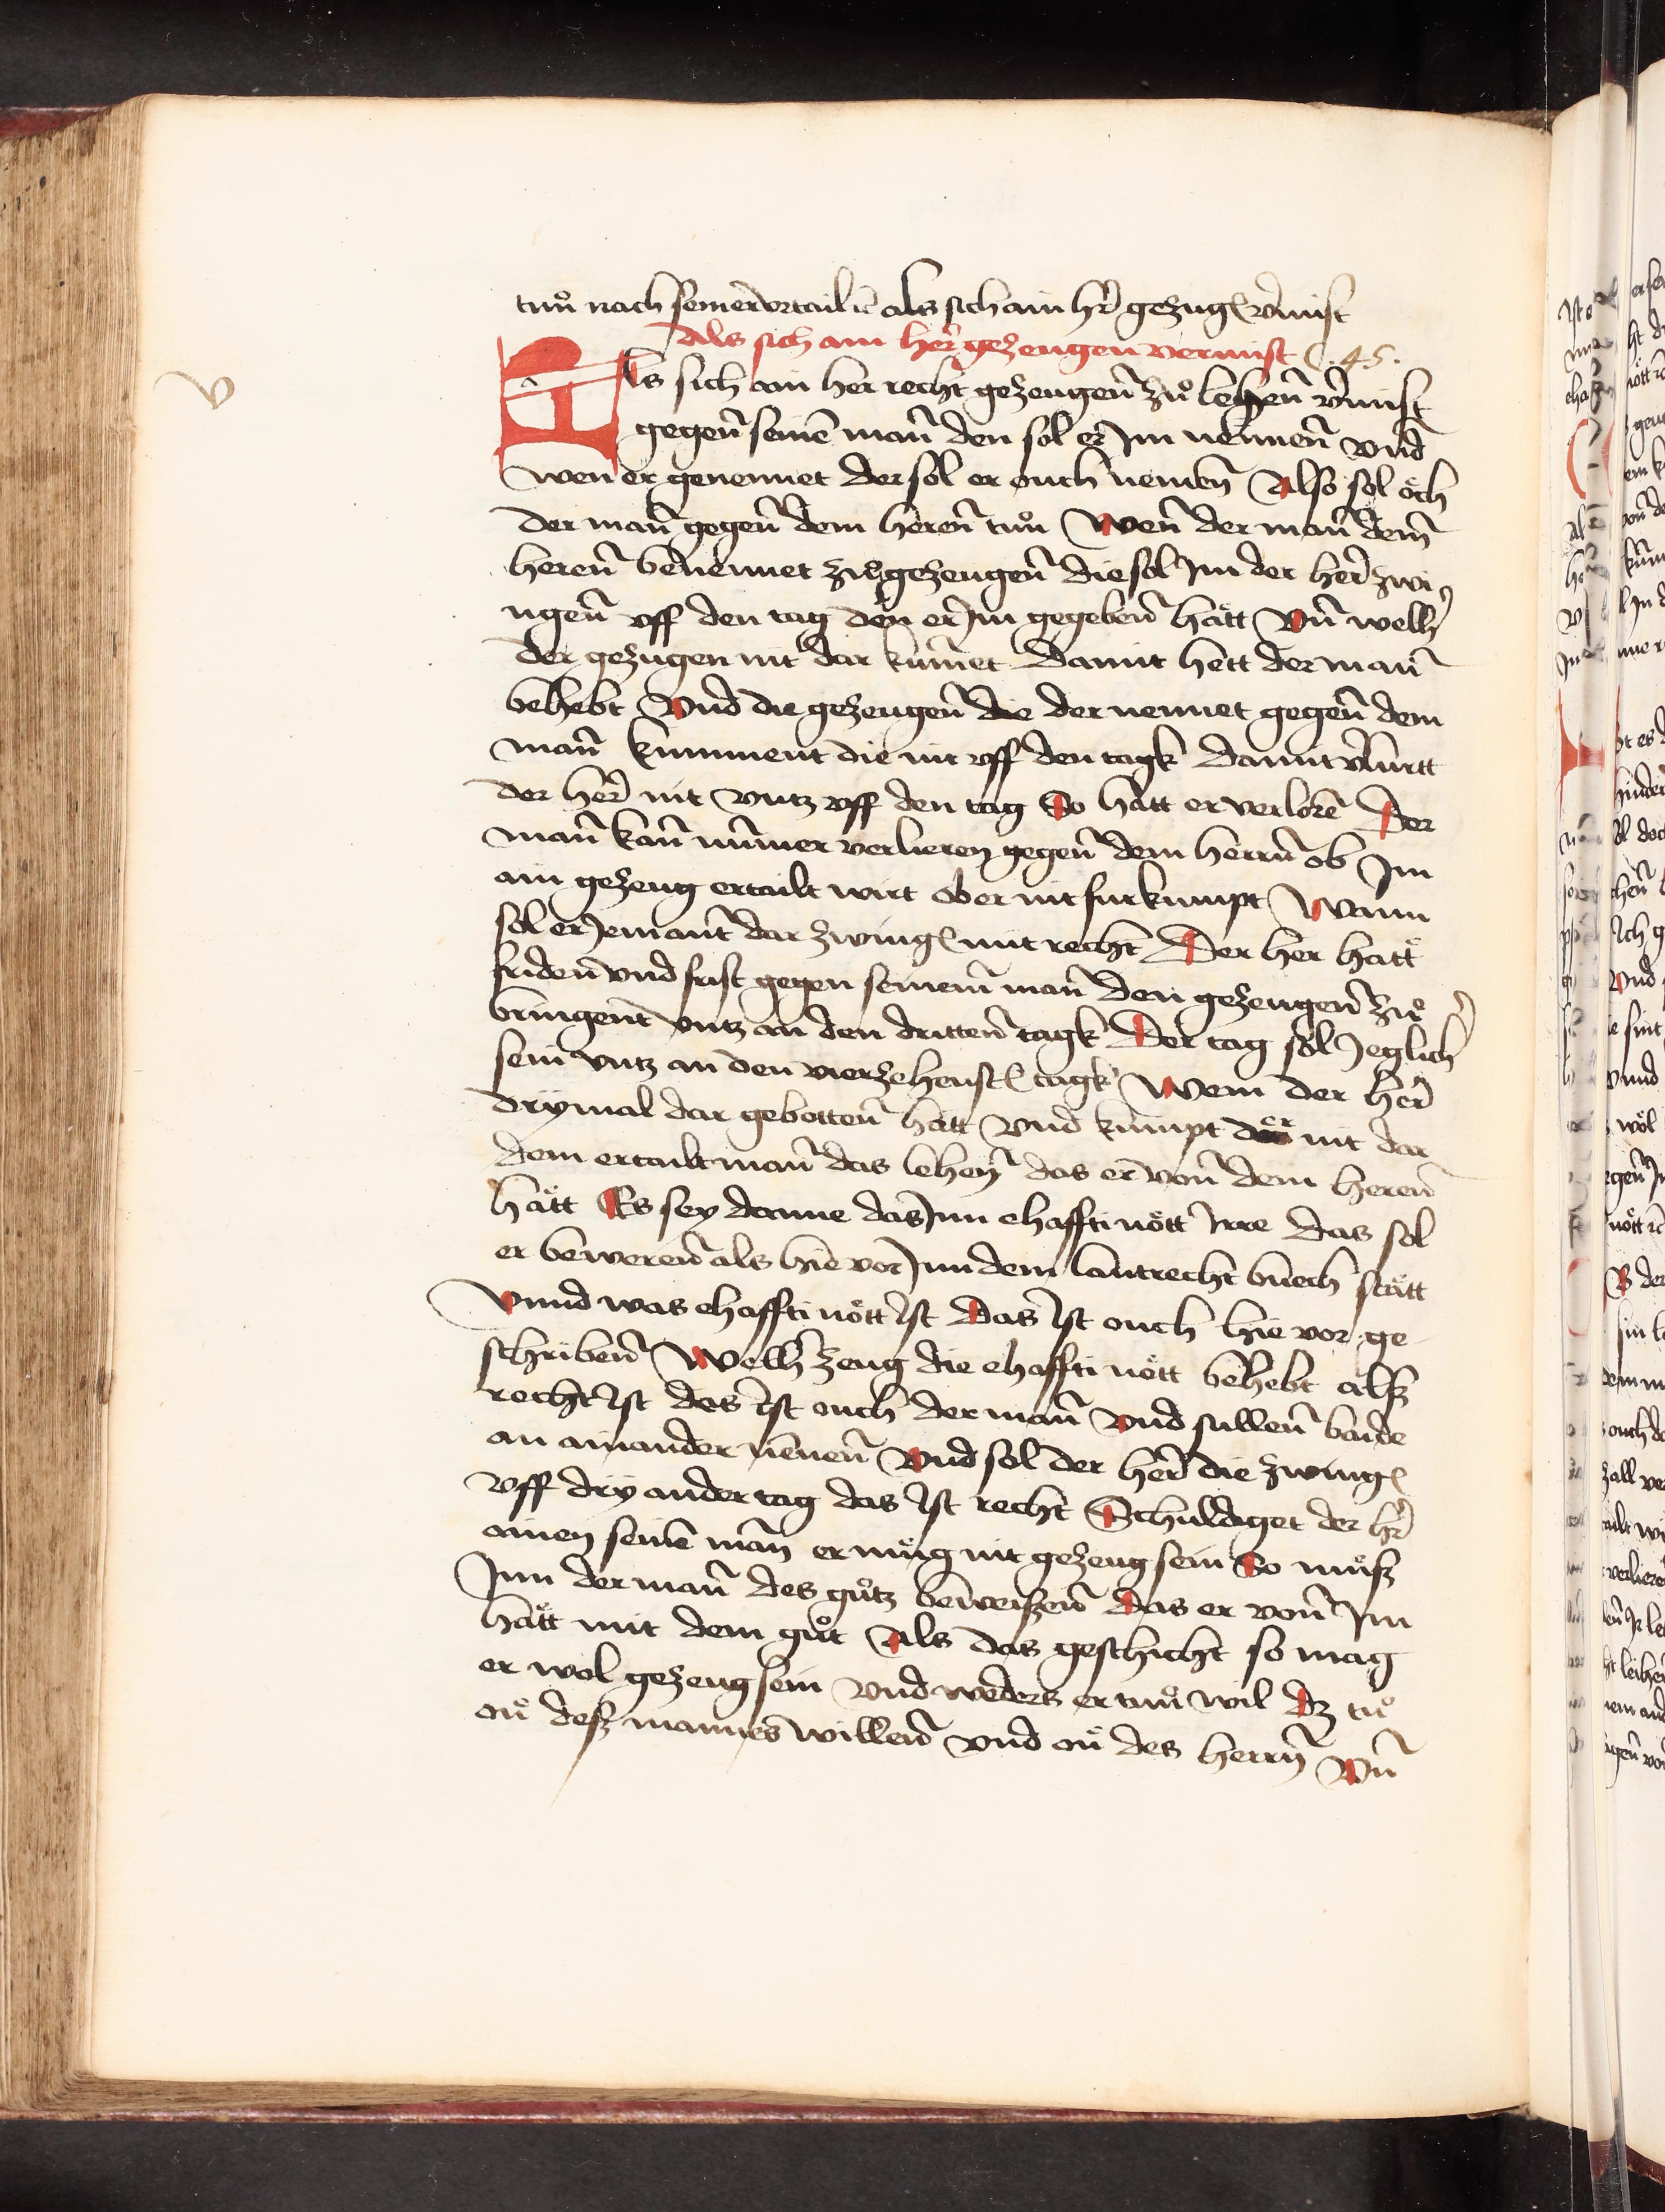 tuͦn nach seiner vrtail ꝛc als sich ain hr̄ gezug v̄mist
Als sich ain her gezeugen vermist C. 45.
Als sich ain her recht gezeugen̄ zuͦ lehen̄ v̄mist
gegen̄ seinē man̄ den sol er Im nennen̄ vnd
wen er genennet der sol er ouch nemen̄ Also sol öch
der man̄ gegen̄ dem heren̄ tuͦn Wen̄ der man̄ dem
heren̄ benennet zuͦ gezeugen̄ die sol Im der her̄ zwi
ngen̄ vff den tag den er Im gegeben̄ hätt Vn̄ welh̄
der gezugen nit dar kumet Damit hett der man̄
behebt Vnd die gezeugen̄ die der nennet gegen̄ dem
man̄ kumment die nit vff den tagk Damit v̄lurtt
der her̄ nit vntz vff den tag So hatt er verlorē Der
man̄ kan̄ nummer verlieren gegen̄ dem herrn̄ ob Im
ain gezeug ertailt wirt ob er nit furkumpt Wann
sol er Jemant dar zwing mit recht Der her hatt
friden̄ vnd frist gegen seinem man̄ den gezeugen̄ zuͦ
bringent vntz an den dritten̄ tagk Der tag sol Jeglich̄
sein vntz an den vierzehenst tagk Wem der her̄
drÿmal dar gebotten̄ hatt vnd kumpt der nit dar
dem ertailt man̄ das lehen̄ das er von̄ dem heren̄
hätt Es sey danne das Inn ehaffti nött Irre Das sol
er beweren̄ als hie vor Inn dem lantrecht buech stätt
Vnnd was ehaffti nött Ist Das Ist ouch hie vor ge
schriben̄ Welh̄ zeug die ehaffti nött behebt alsz
recht Ist des Ist ouch der man̄ vnd sullen̄ baide
an ainander nennen̄ Vnd sol der her̄ die zwing
vff drÿ ander tag das Ist recht Schuldiget der hr̄
ainen seinē man̄ er müg nit gezeug sein So muͦsz
Inn der man̄ des guͦtz beweiszen̄ Das er von̄ Im
hätt mit dem guͦt Als das geschicht so mag
er wol gezeug sein Vnd weders er tuͦn wil Dz tuͦ
on̄ desz mannes willen̄ vnd on̄ des herrn̄ Vn̄